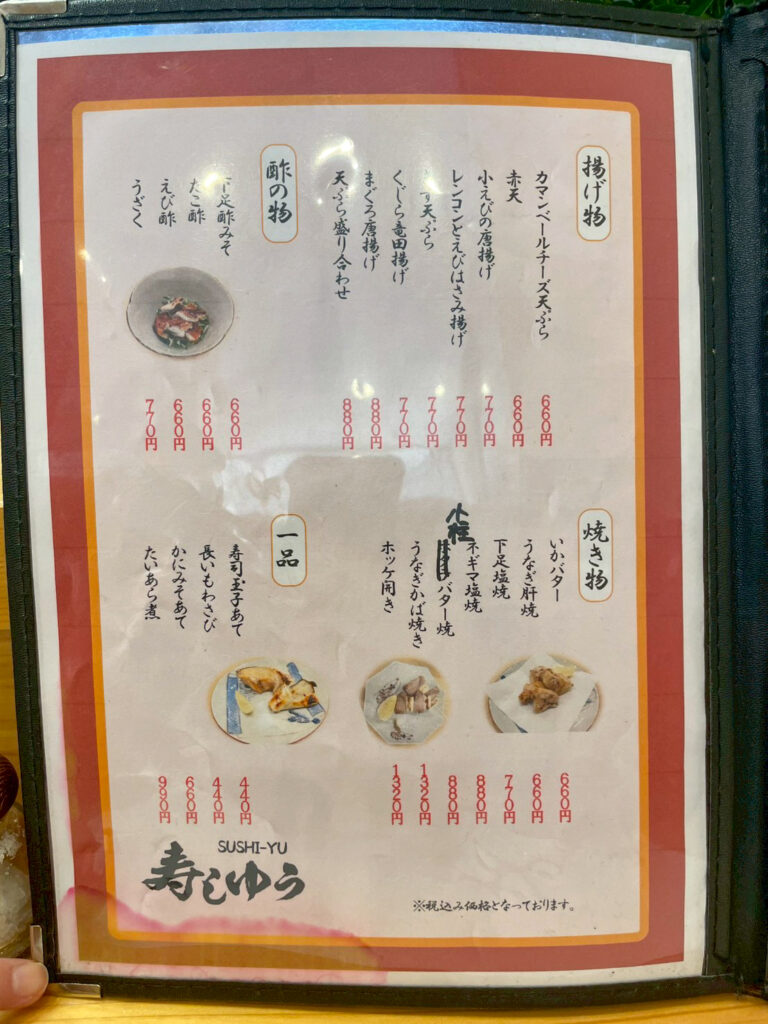 揚げ物
カマンベールチーズ天ぷら
赤天
小えびの唐揚げ
レンコンとえびはさみ揚げ
天ぷら
くじら竜田揚げ
まぐろ唐揚げ
天ぷら盛り合わせ
660円
660円
770円
770円
770円
770円
880円
880円
酢の物
下足酢みそ
たこ酢
えび酢
うざく
660円
660円
660円
770円
焼き物
いかバター
うなぎ肝焼
下足塩焼
ネギマ塩焼
小柱バター焼
うなぎかば焼き
ホッケ開き
660円
660円
770円
880円
880円
1320円
1320円
一品
寿司玉子あて
長いもわさび
かにみそあて
たいあら煮
440円
440円
660円
990円
SUSHI-YU
寿しゆう
※税込み価格となっております。